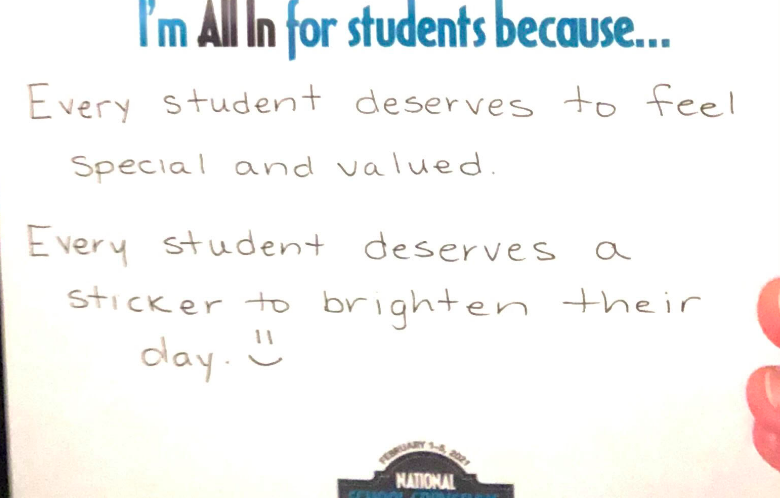 I'm All In for students because...
Every student deserves to feel
special and valued.
Every student deserves a
sticker to brighten their
day. :)
FEBRUARY 1-5, 2021
NATIONAL
SCHOOL COUNSELING